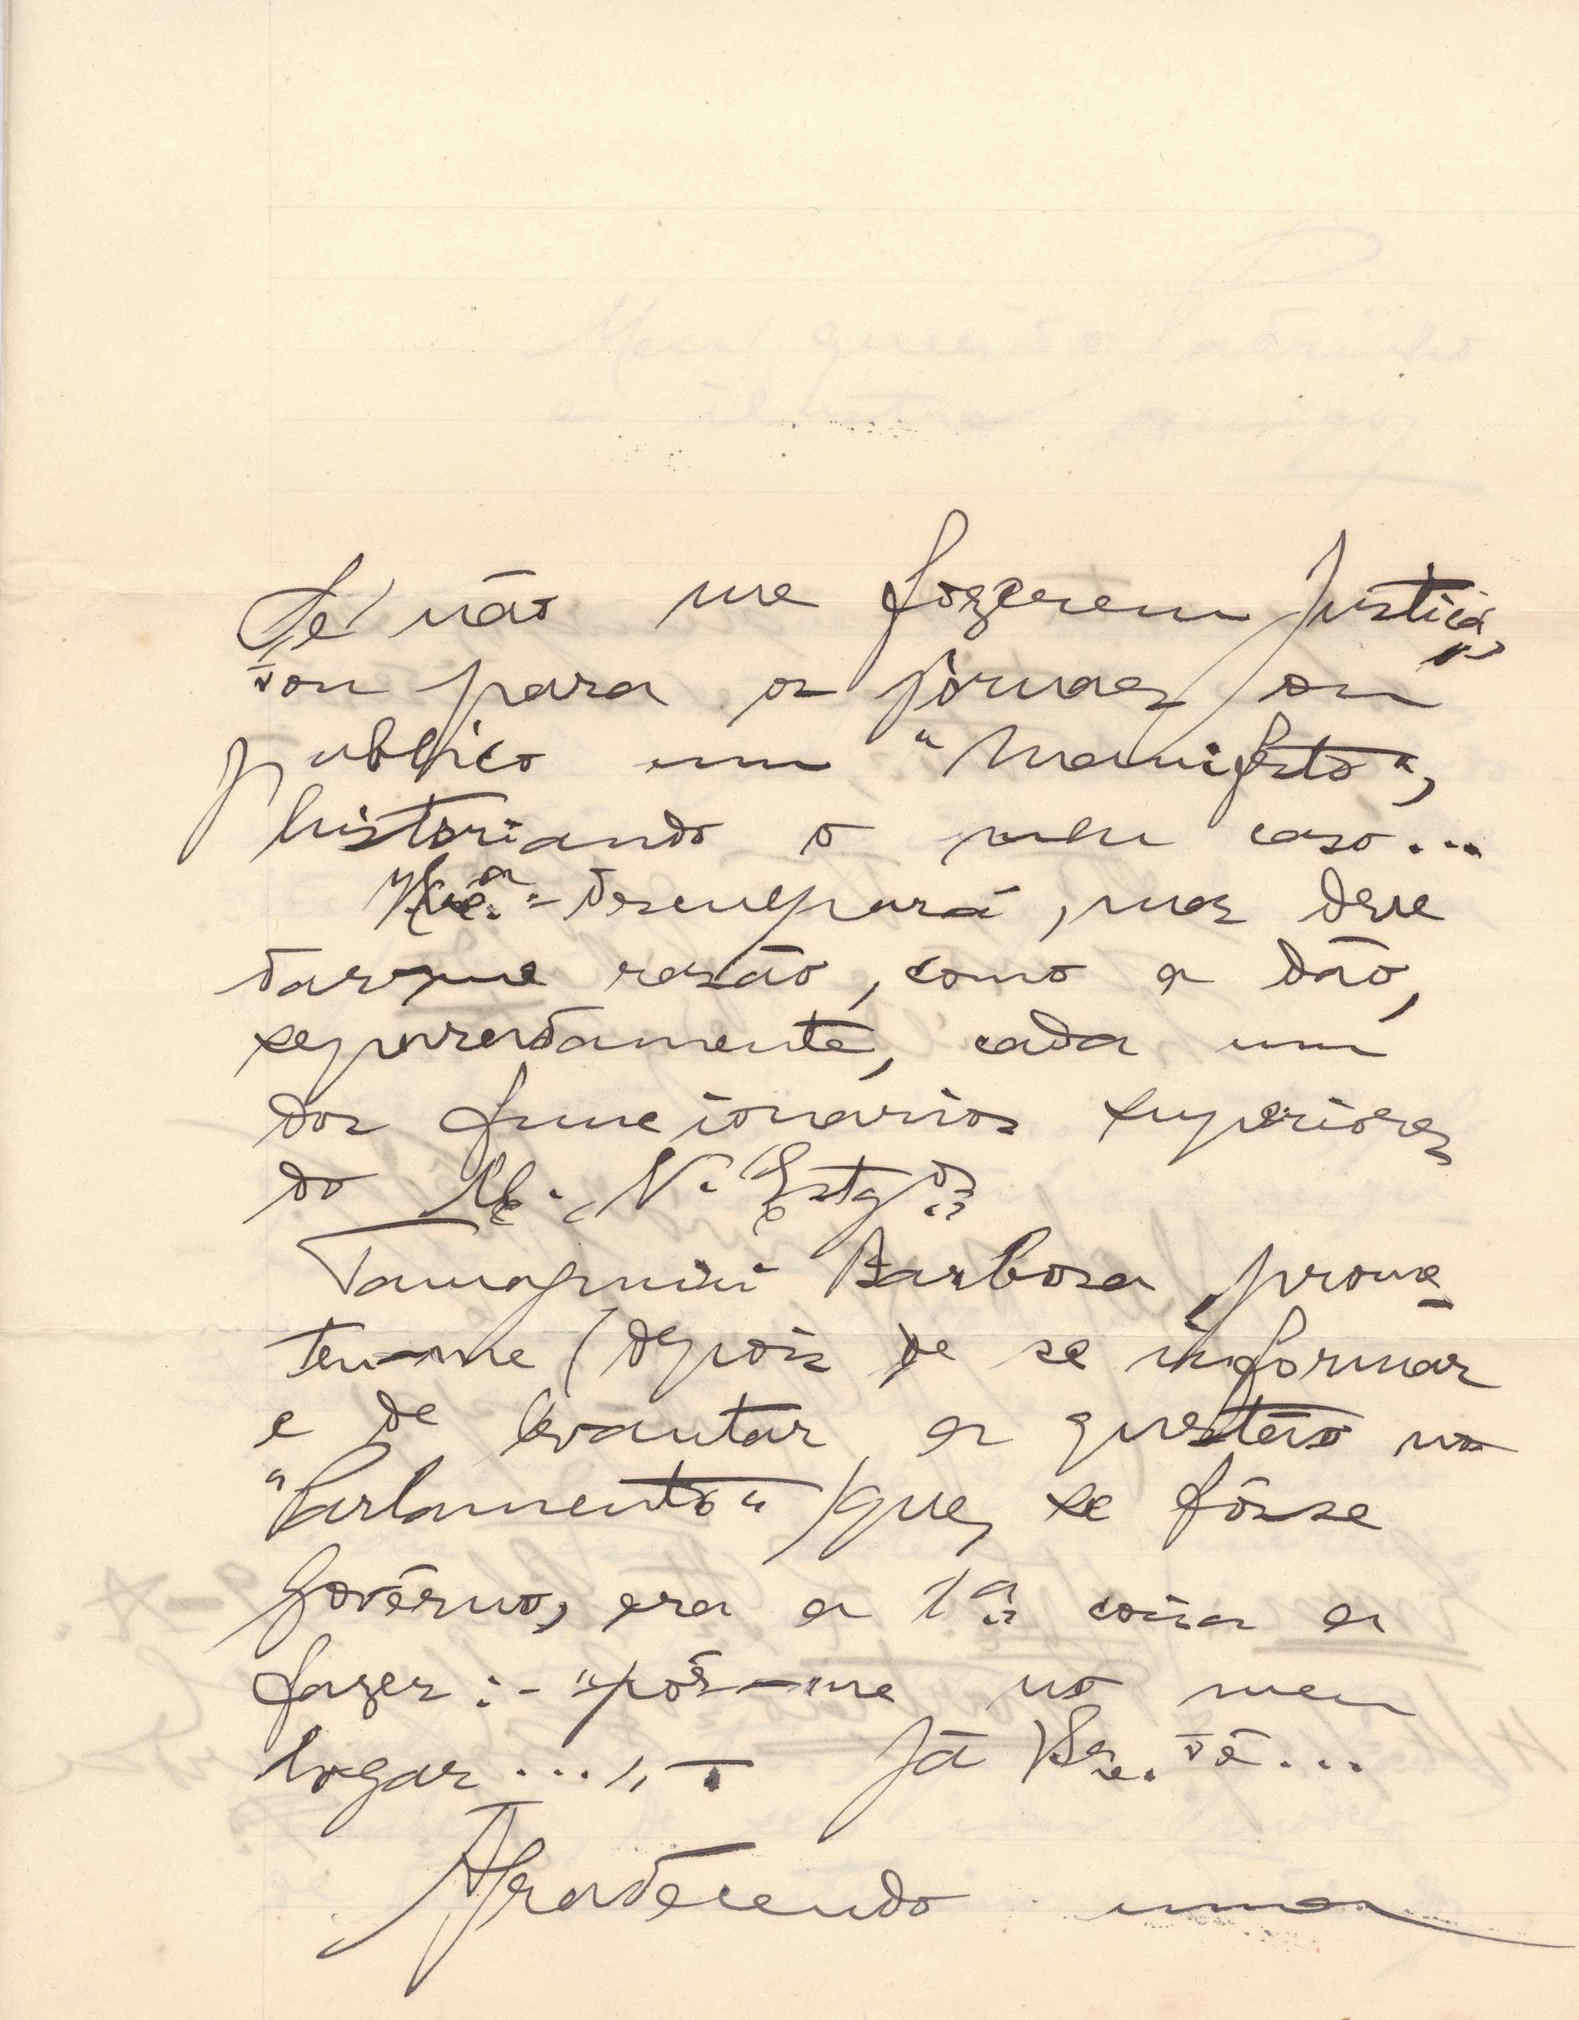 Se não me fozerem Justiça,
vou para os jornaes ou
publico um "Manifesto",
historiando o meu caso...
desculpará, mas deve
dar-me rasão, como a dão,
separadamente, cada um
dos funcionarios superiores
do M. N. Estgos
Tamagnini Barbosa prome-
teu-me (depois de se informar
e de levantar a questão no
"Parlamento") que, se fôsse
Govêrno, era a 1ª coisa a
fazer:- "pôr-me no meu
logar..." - Já V. vê...
Agradecendo uma